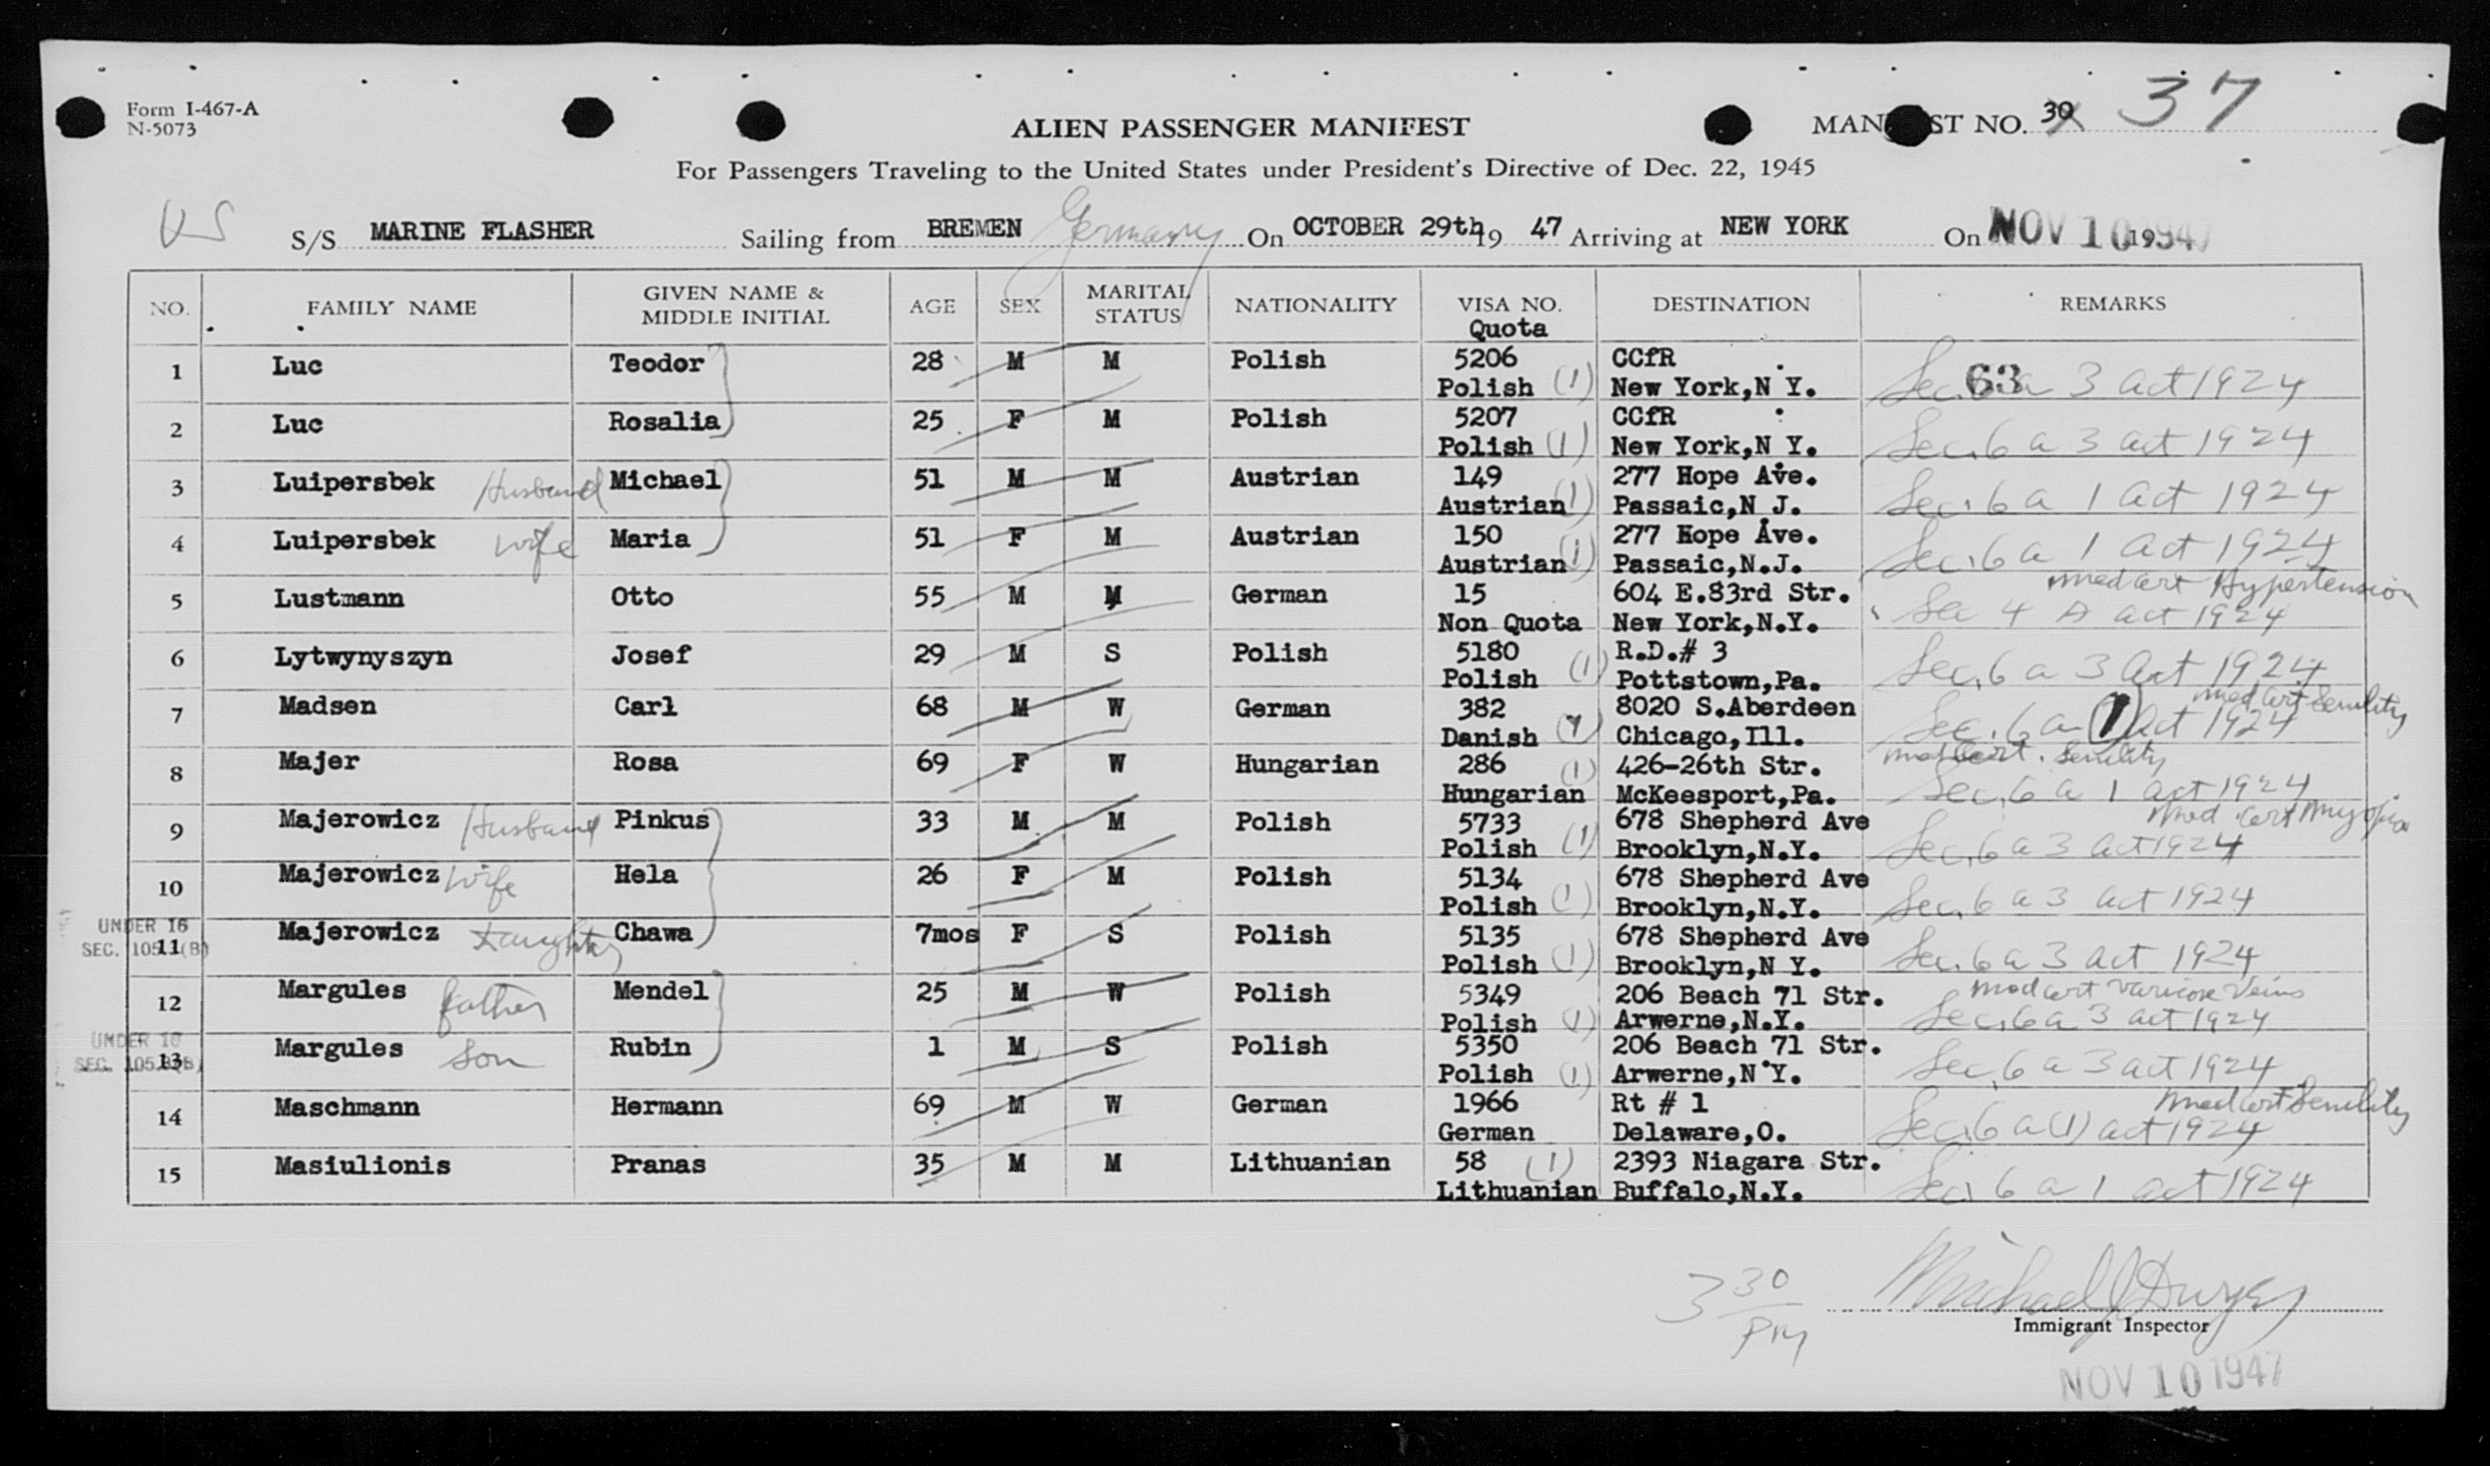 Form I-467-A
N-5073
ALIEN PASSENGER MANIFEST
MAN ST NO. 30 37
For Passengers Traveling to the United States under President's Directive of Dec. 22, 1945
US S/S MARINE FLASHER Sailing from BREMEN Germany On OCTOBER 29th 19 47 Arriving at NEW YORK On NOV 10 1947
NO. FAMILY NAME GIVEN NAME & MIDDLE INITIAL AGE SEX MARITAL STATUS NATIONALITY VISA NO. Quota DESTINATION REMARKS
1 Luc Teodor 28 M M Polish 5206 CCfR
Polish (1) New York,N Y. Sec. 63 a 3 act 1924
2 Luc Rosalia 25 F M Polish 5207 CCfR
Polish (1) New York,N Y. Sec. 6 a 3 act 1924
3 Luipersbek Husband Michael 51 M M Austrian 149 277 Hope Ave.
Austrian (1) Passaic,N J. Sec. 6 a 1 act 1924
4 Luipersbek wife Maria 51 F M Austrian 150 277 Hope Ave.
Austrian (1) Passaic,N.J. Sec. 6 a 1 act 1924
5 Lustmann Otto 55 M M German 15 604 E.83rd Str. med cert Hypertension
Non Quota New York,N.Y. Sec 4 A act 1924
6 Lytwynyszyn Josef 29 M S Polish 5180 R.D.# 3
Polish (1) Pottstown,Pa. Sec. 6 a 3 act 1924
7 Madsen Carl 68 M W German 382 8020 S.Aberdeen med cert Senility
Danish (1) Chicago,Ill. Sec. 6 a (1) act 1924
8 Majer Rosa 69 F W Hungarian 286 (1) 426-26th Str. med cert. Senility
Hungarian McKeesport,Pa. Sec. 6 a 1 act 1924
9 Majerowicz Husband Pinkus 33 M M Polish 5733 678 Shepherd Ave med cert myopia
Polish (1) Brooklyn,N.Y. Sec. 6 a 3 act 1924
10 Majerowicz wife Hela 26 F M Polish 5134 678 Shepherd Ave
Polish (1) Brooklyn,N.Y. Sec. 6 a 3 act 1924
UNDER 16
SEC. 105.3(B) 11 Majerowicz Daughter Chawa 7mos F S Polish 5135 678 Shepherd Ave
Polish (1) Brooklyn,N Y. Sec. 6 a 3 act 1924
12 Margules father Mendel 25 M W Polish 5349 206 Beach 71 Str. med cert varicose veins
Polish (1) Arwerne,N.Y. Sec. 6 a 3 act 1924
UNDER 16
SEC. 105.3(B) 13 Margules son Rubin 1 M S Polish 5350 206 Beach 71 Str.
Polish (1) Arwerne,N Y. Sec. 6 a 3 act 1924
14 Maschmann Hermann 69 M W German 1966 Rt # 1 med cert Senility
German Delaware,O. Sec. 6 a (1) act 1924
15 Masiulionis Pranas 35 M M Lithuanian 58 (1) 2393 Niagara Str.
Lithuanian Buffalo,N.Y. Sec. 6 a 1 act 1924
3 30 PM Michael J Dwyer
Immigrant Inspector
NOV 10 1947